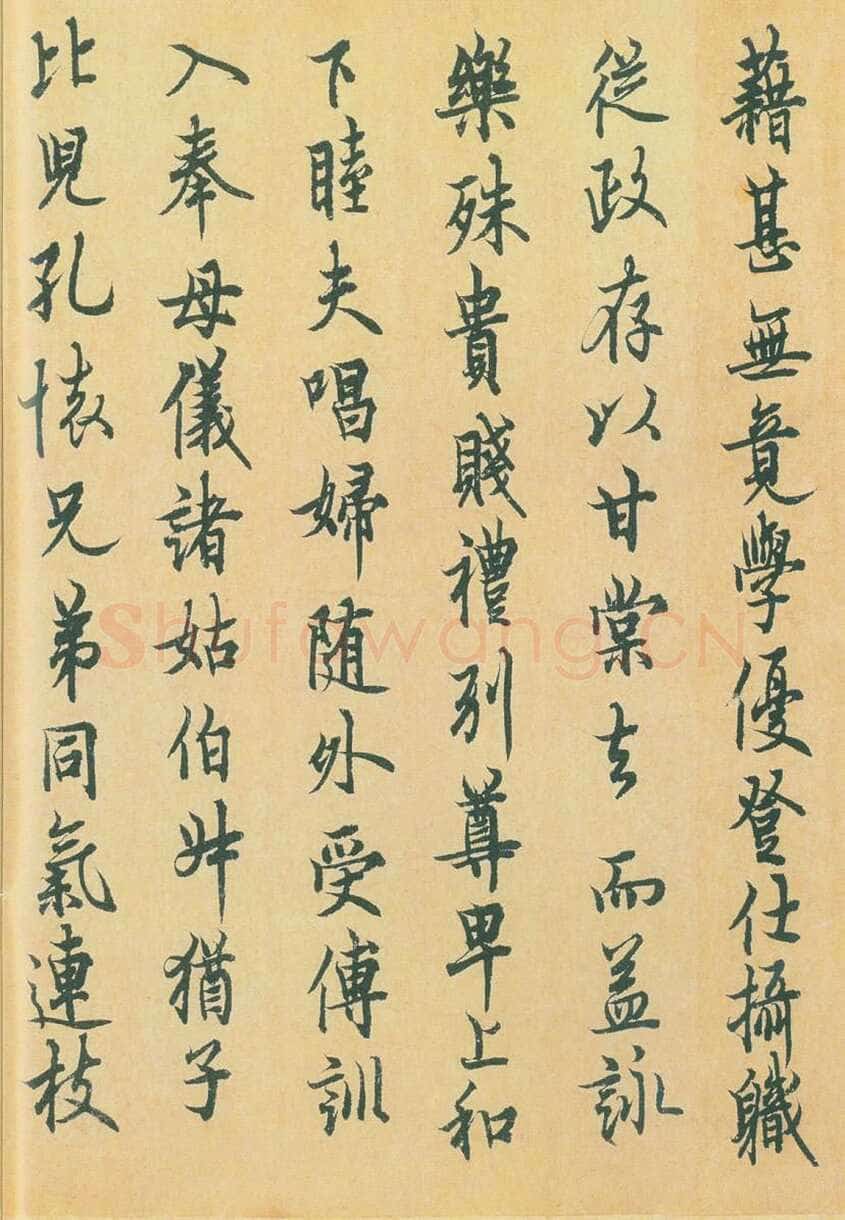 藉甚無竟學優登仕攝職
從政存以甘棠去而益詠
樂殊貴賤禮別尊卑上和
下睦夫唱婦随外受傅訓
入奉母儀諸姑伯叔猶子
比兒孔懷兄弟同氣連枝
Shufawang.CN